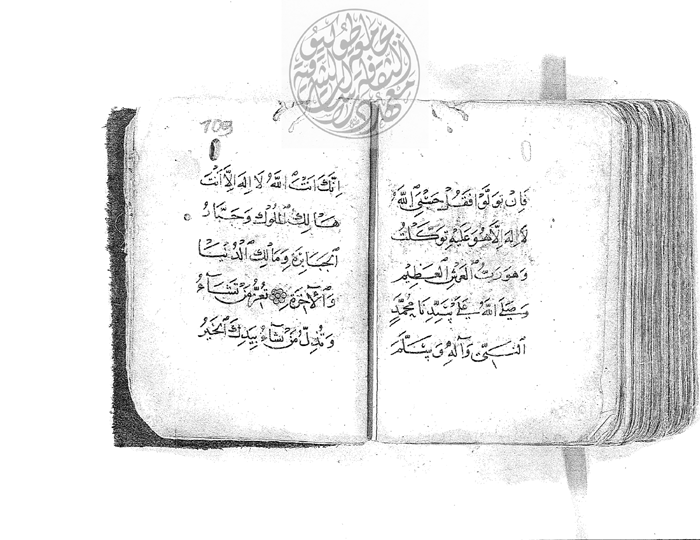 فَاِنْ تَوَلَّوْا فَقُلْ حَسْبِيَ اللّٰهُ
لَا اِلٰهَ اِلَّا هُوَ عَلَيْهِ تَوَكَّلْتُ
وَهُوَ رَبُّ الْعَرْشِ الْعَظِيْمِ
وَصَلَّى اللّٰهُ عَلٰى سَيِّدِنَا مُحَمَّدٍ
النَّبِيِّ وَآلِهِ وَسَلَّمَ
109
اِنَّكَ اَنْتَ اللّٰهُ لَا اِلٰهَ اِلَّا اَنْتَ
مَالِكُ الْمُلُوْكِ وَجَبَّارُ
الْجَبَابِرَةِ وَمَالِكُ الدُّنْيَا
وَالْآخِرَةِ تُعِزُّ مَنْ تَشَاءُ
وَتُذِلُّ مَنْ تَشَاءُ بِيَدِكَ الْخَيْرُ